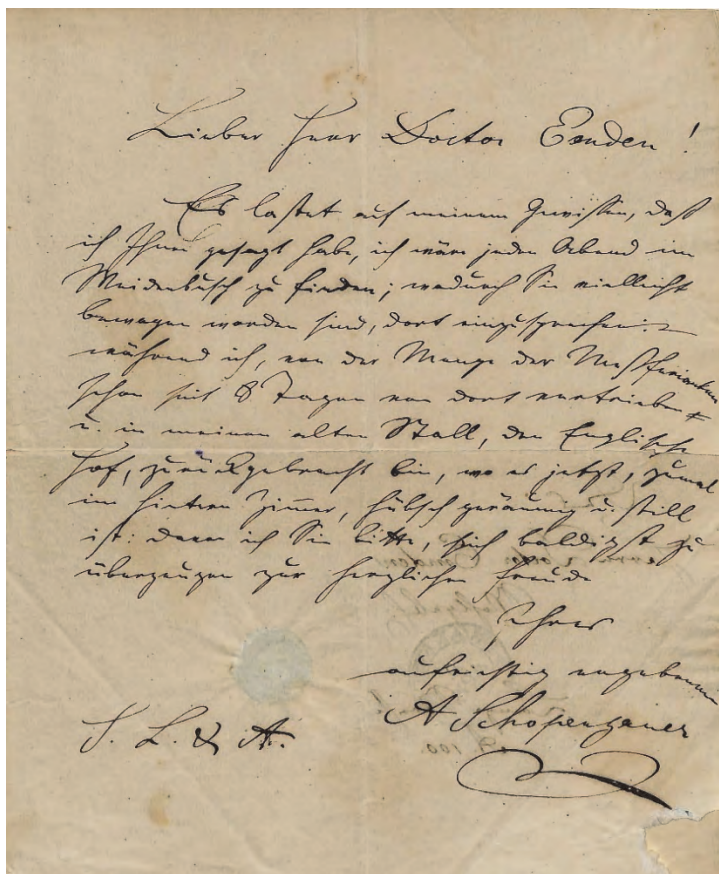 Lieber Herr Doctor Emden!
Es lastet auf meinem Gewissen, daß
ich Ihnen gesagt habe, ich wäre jeden Abend im
Weidenbusch zu finden; wodurch Sie vielleicht
bewogen worden sind, dort einzusprechen:
während ich, von der Menge der Meßfremden
schon seit 8 Tagen von dort vertrieben
u. in meinen alten Stall, den Englischen
Hof, zurückgebracht bin, wo es jetzt, zumal
im hintern Zimmer, hübsch geräumig u. still
ist: davon ich Sie bitte, sich baldigst zu
überzeugen zur herzlichen Freude
Ihres
aufrichtig ergebenen
A Schopenhauer
S. L. & A.